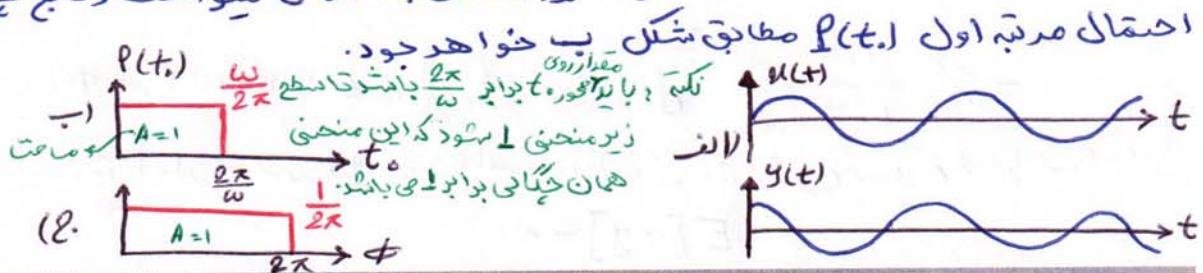 احتمال مرتبه اول P(t₀) مطابق شکل ب خواهد بود.
نکته : باید مقدار روی محور t₀ برابر 2π/ω باشد تا سطح
زیر منحنی 1 بشود که این منحنی
همان چگالی برابر 1 می باشد.
الف)
x(t)
t
y(t)
t
ب)
P(t₀)
ω/2π
A=1
مساحت
2π/ω
t₀
ج)
1/2π
A=1
2π
ϕ